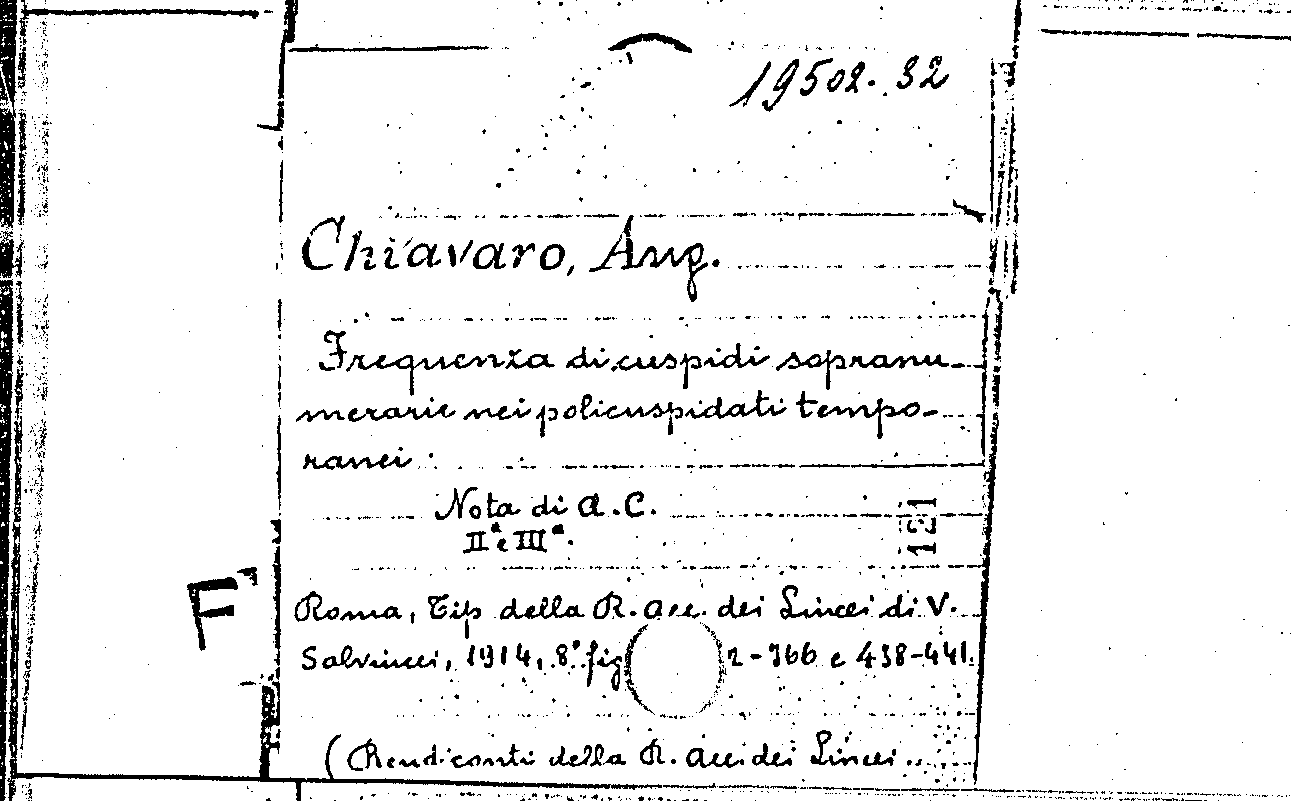 19502.32
Chiavaro, Ang.
Frequenza di cuspidi sopranu-
merarie nei policuspidati tempo-
ranei
Nota di A. C.
IIª e IIIª.
121
F
Roma, Tip della R. Acc. dei Lincei di V.
Salviucci, 1914, 8° fig 2-366 e 438-441.
(Rendiconti della R. Acc. dei Lincei ..